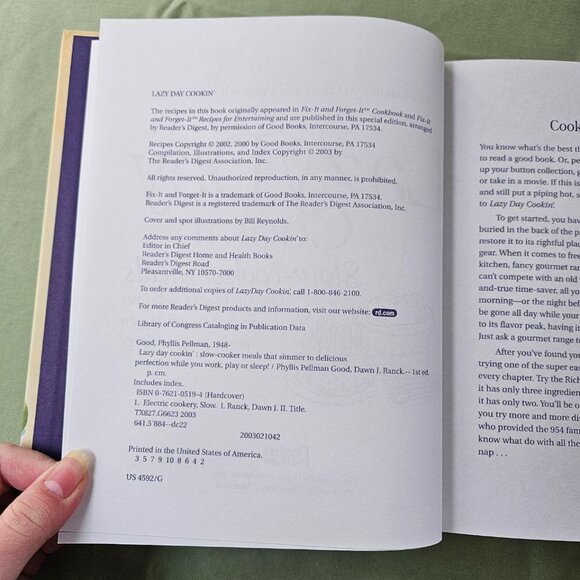 LAZY DAY COOKIN'
The recipes in this book originally appeared in Fix-It and Forget-It™ Cookbook and Fix-It
and Forget-It™ Recipes for Entertaining and are published in this special edition, arranged
by Reader's Digest, by permission of Good Books, Intercourse, PA 17534.
Recipes Copyright © 2002, 2000 by Good Books, Intercourse, PA 17534
Compilation, Illustrations, and Index Copyright © 2003 by
The Reader's Digest Association, Inc.
All rights reserved. Unauthorized reproduction, in any manner, is prohibited.
Fix-It and Forget-It is a trademark of Good Books, Intercourse, PA 17534.
Reader's Digest is a registered trademark of The Reader's Digest Association, Inc.
Cover and spot illustrations by Bill Reynolds.
Address any comments about Lazy Day Cookin' to:
Editor in Chief
Reader's Digest Home and Health Books
Reader's Digest Road
Pleasantville, NY 10570-7000
To order additional copies of LazyDay Cookin', call 1-800-846-2100.
For more Reader's Digest products and information, visit our website: rd.com
Library of Congress Cataloging in Publication Data
Good, Phyllis Pellman, 1948-
Lazy day cookin' : slow-cooker meals that simmer to delicious
perfection while you work, play or sleep! / Phyllis Pellman Good, Dawn J. Ranck.-- 1st ed.
p. cm.
Includes index.
ISBN 0-7621-0519-4 (Hardcover)
1. Electric cookery, Slow. I. Ranck, Dawn J. II. Title.
TX827.G6623 2003
641.5'884--dc22
2003021042
Printed in the United States of America.
3 5 7 9 10 8 6 4 2
US 4592/G
Cook
You know what's the best th
to read a good book. Or, pe
up your button collection, g
or take in a movie. If this is
and still put a piping hot, s
to Lazy Day Cookin'.
To get started, you have
buried in the back of the p
restore it to its rightful plac
gear. When it comes to free
kitchen, fancy gourmet ran
can't compete with an old
and-true time-saver, all you
morning—or the night before
be gone all day while your
to its flavor peak, having it
Just ask a gourmet range to
After you've found you
trying one of the super eas
every chapter. Try the Rich
it has only three ingredien
it has only two. You'll be o
you try more and more dis
who provided the 954 fam
know what do with all the
nap . . .